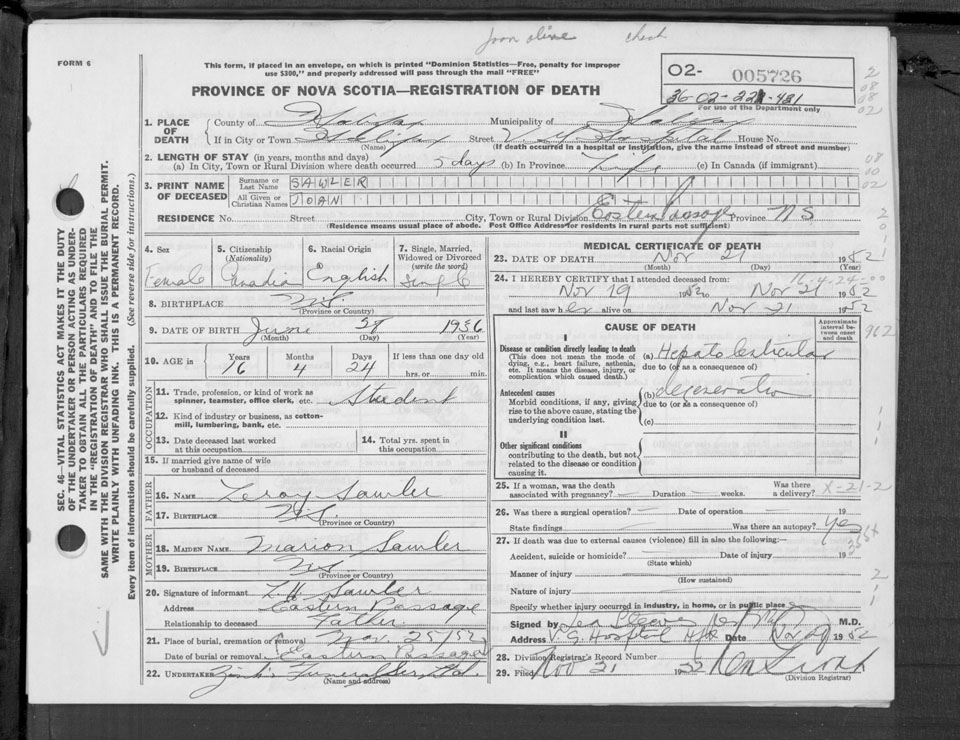 Joan Oline check
FORM 6
This form, if placed in an envelope, on which is printed "Dominion Statistics—Free, penalty for improper
use $300," and properly addressed will pass through the mail "FREE"
PROVINCE OF NOVA SCOTIA—REGISTRATION OF DEATH
O2- 005726
36-02-221-431
For use of the Department only
1. PLACE OF DEATH
County of Halifax Municipality of Halifax
If in City or Town Halifax Street V. G. Hospital House No.
(Name) (If death occurred in a hospital or institution, give the name instead of street and number)
2. LENGTH OF STAY (in years, months and days)
(a) In City, Town or Rural Division where death occurred 5 days (b) In Province Life (c) In Canada (if immigrant)
3. PRINT NAME OF DECEASED
Surname or Last Name SAWLER
All Given or Christian Names JOAN
RESIDENCE No. Street City, Town or Rural Division Eastern Passage Province N S
(Residence means usual place of abode. Post Office Address for residents in rural parts not sufficient)
4. Sex 5. Citizenship (Nationality) 6. Racial Origin 7. Single, Married, Widowed or Divorced (write the word)
Female Canadian English Single
8. BIRTHPLACE N.S.
(Province or Country)
9. DATE OF BIRTH June 28 1936
(Month) (Day) (Year)
10. AGE in Years Months Days If less than one day old
16 4 24 hrs. or min.
OCCUPATION
11. Trade, profession, or kind of work as spinner, teamster, office clerk, etc. Student
12. Kind of industry or business, as cotton-mill, lumbering, bank, etc.
13. Date deceased last worked at this occupation
14. Total yrs. spent in this occupation
15. If married give name of wife or husband of deceased
FATHER
16. NAME Leroy Sawler
17. BIRTHPLACE N.S.
(Province or Country)
MOTHER
18. MAIDEN NAME Marion Sawler
19. BIRTHPLACE N.S.
(Province or Country)
20. Signature of informant L H Sawler
Address Eastern Passage
Relationship to deceased Father
21. Place of burial, cremation or removal Nov. 25/52
Date of burial or removal Eastern Passage
22. UNDERTAKER Zink's Funeral Ser. Ltd.
(Name and address)
MEDICAL CERTIFICATE OF DEATH
23. DATE OF DEATH Nov 21 1952
(Month) (Day) (Year)
24. I HEREBY CERTIFY that I attended deceased from:
Nov 19 1952 to Nov 21 1952
and last saw her alive on Nov 21 1952
CAUSE OF DEATH
Approximate interval between onset and death
I
Disease or condition directly leading to death
(This does not mean the mode of dying, e.g., heart failure, asthenia, etc. It means the disease, injury, or complication which caused death.)
(a) Hepato lenticular
due to (or as a consequence of)
Antecedent causes
Morbid conditions, if any, giving rise to the above cause, stating the underlying condition last.
(b) degeneration
due to (or as a consequence of)
(c)
II
Other significant conditions
contributing to the death, but not related to the disease or condition causing it.
25. If a woman, was the death associated with pregnancy? — Duration — weeks. Was there a delivery? X-21-2
26. Was there a surgical operation? — Date of operation — 19
State findings — Was there an autopsy? Yes
27. If death was due to external causes (violence) fill in also the following:—
Accident, suicide or homicide? — Date of injury 19
(State which)
Manner of injury
(How sustained)
Nature of injury
Specify whether injury occurred in industry, in home, or in public place
Signed by M.D.
Address V. G. Hospital Hfx Date Nov 1952
28. Division Registrar's Record Number
29. Filed Nov 21 1952
(Division Registrar)
SEC. 46—VITAL STATISTICS ACT MAKES IT THE DUTY
OF THE UNDERTAKER OR PERSON ACTING AS UNDER-
TAKER TO OBTAIN ALL THE PARTICULARS REQUIRED
IN THE "REGISTRATION OF DEATH" AND TO FILE THE
SAME WITH THE DIVISION REGISTRAR WHO SHALL ISSUE THE BURIAL PERMIT.
WRITE PLAINLY WITH UNFADING INK. THIS IS A PERMANENT RECORD.
Every item of information should be carefully supplied. (See reverse side for instructions.)